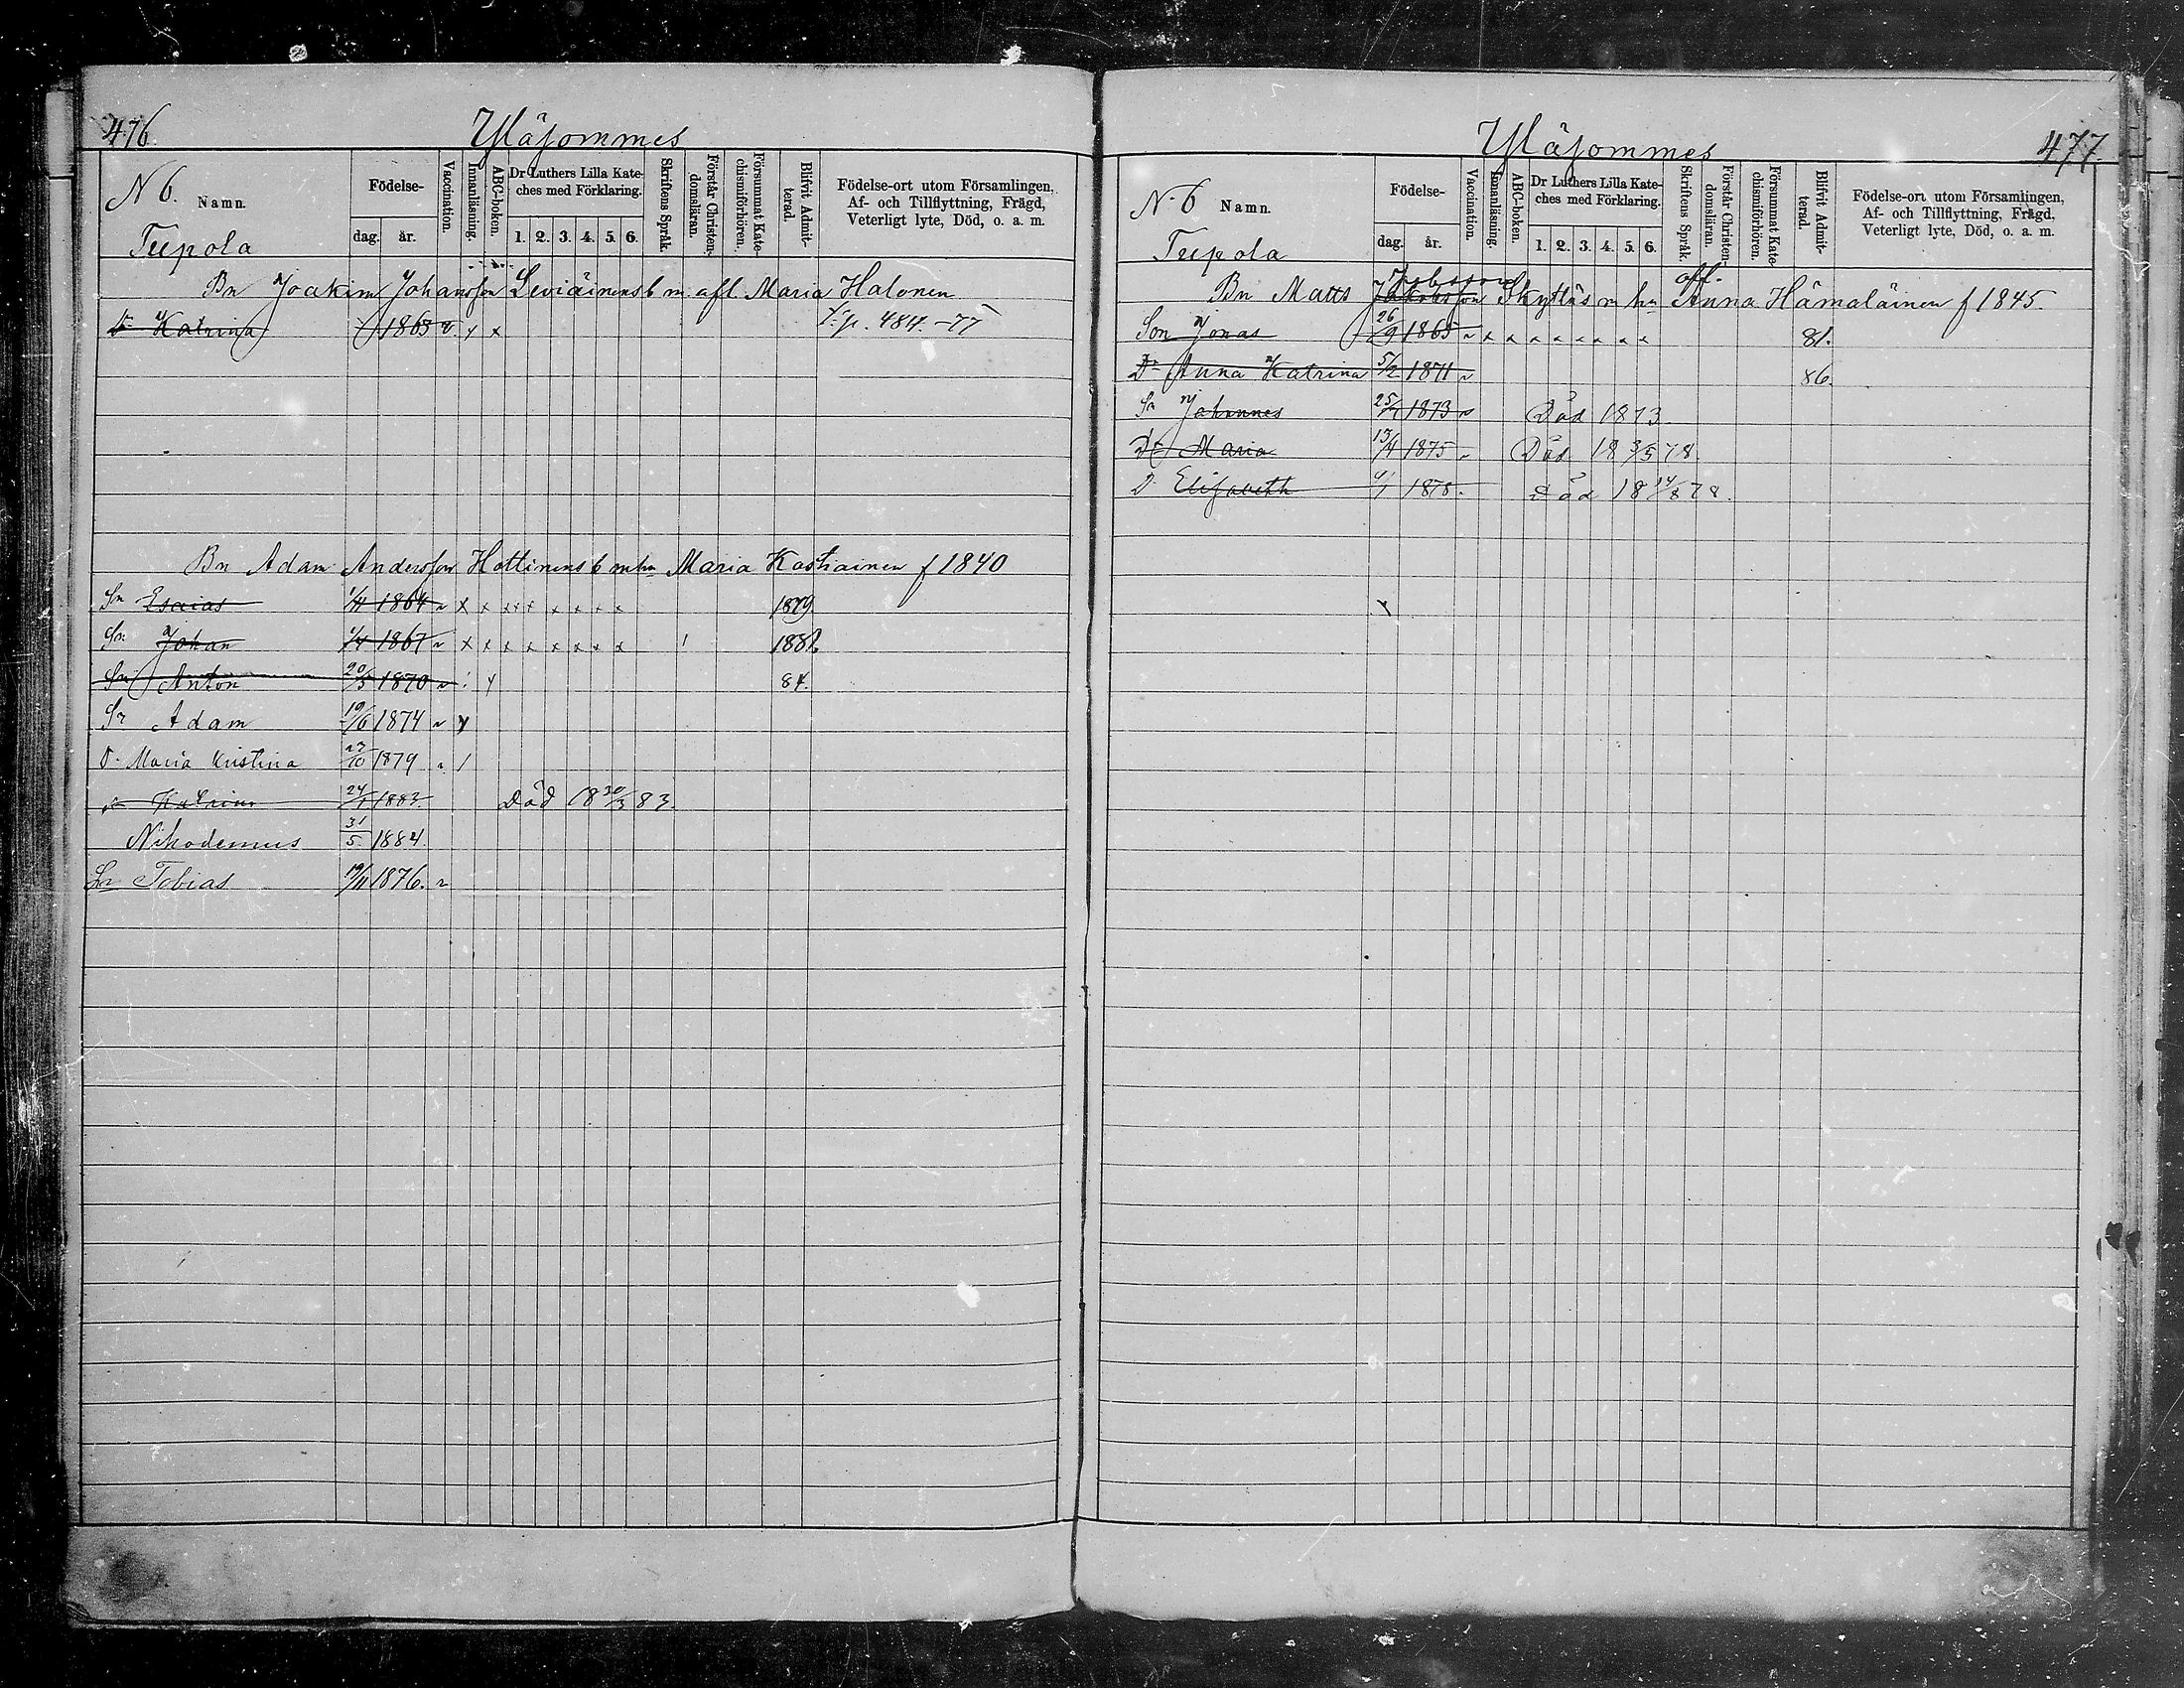 476.
Yläjommes
N 6.
Namn.
Födelse-
dag. år.
Vaccination.
Innanläsning.
ABC-boken.
Dr Luthers Lilla Kate-
ches med Förklaring.
1. 2. 3. 4. 5. 6.
Skriftens Språk.
Förstår Christen-
domsläran.
Försummat Kate-
chismiförhören.
Blifvit Admit-
terad.
Födelse-ort utom Församlingen,
Af- och Tillflyttning, Frägd,
Veterligt lyte, Död, o. a. m.
Teepola
Bn Joakim Johansson Leviäinens b m. afl. Maria Halonen
Dr Katrina 1863 v. x x p. 484. -77
Bn Adam Andersson Hottinens b m hu Maria Kastiainen f 1840
Sn Esaias 1864 x x x x x x x x x 1879
Sn Johan 1/4 1867 x x x x x x x x 1882
Sn Anton 20/5 1870 84.
Sn Adam 19/6 1874
D. Maria Kristina 23/10 1879
Katrina 24/1 1883. Död 18 30/3 83.
Nikodemus 31/5 1884.
Sn Tobias 19/11 1876.
Yläjommes
477.
N 6
Namn.
Födelse-
dag. år.
Vaccination.
Innanläsning.
ABC-boken.
Dr Luthers Lilla Kate-
ches med Förklaring.
1. 2. 3. 4. 5. 6.
Skriftens Språk.
Förstår Christen-
domsläran.
Försummat Kate-
chismiförhören.
Blifvit Admit-
terad.
Födelse-ort utom Församlingen,
Af- och Tillflyttning, Frägd,
Veterligt lyte, Död, o. a. m.
Teepola
Jobsson afl.
Bn Matts Jakobsson Skyttäs m hu Anna Hämäläinen f 1845.
Son Jonas 26/9 1865 x x x x x x x x 81.
Dr Anna Katrina 5/2 1871 86.
Sn Johannes 1873 Död 1873.
Dr Maria 13/4 1875 Död 18 3/5 78.
D Elisabeth 1878. Död 18 14/8 78.